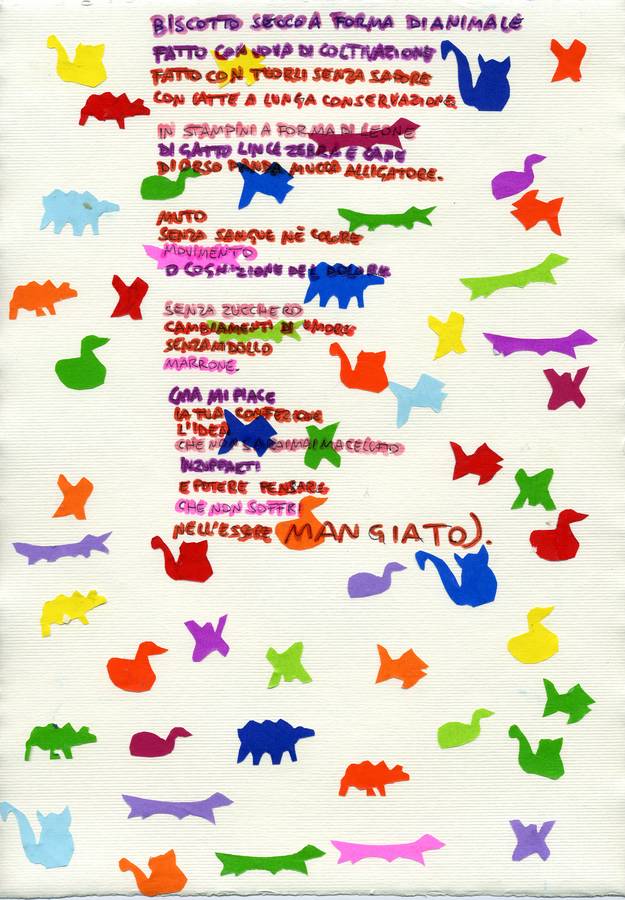 BISCOTTO SECCO A FORMA DI ANIMALE
FATTO CON UOVA DI COLTIVAZIONE
FATTO CON TUORLI SENZA SAPORE
CON LATTE A LUNGA CONSERVAZIONE
IN STAMPINI A FORMA DI LEONE
DI GATTO LINCE ZEBRA E CANE
DI ORSO PANDA MUCCA ALLIGATORE.
MUTO
SENZA SANGUE NÈ COLORE
MOVIMENTO
O COGNIZIONE DEL DOLORE
SENZA ZUCCHERO
CAMBIAMENTI DI UMORE
SENZA MIDOLLO
MARRONE.
(MA MI PIACE
LA TUA CONFEZIONE
L'IDEA
CHE NON SARAI MAI MACELLATO
INZUPPARTI
E POTERE PENSARE
CHE NON SOFFRI
NELL'ESSERE MANGIATO).